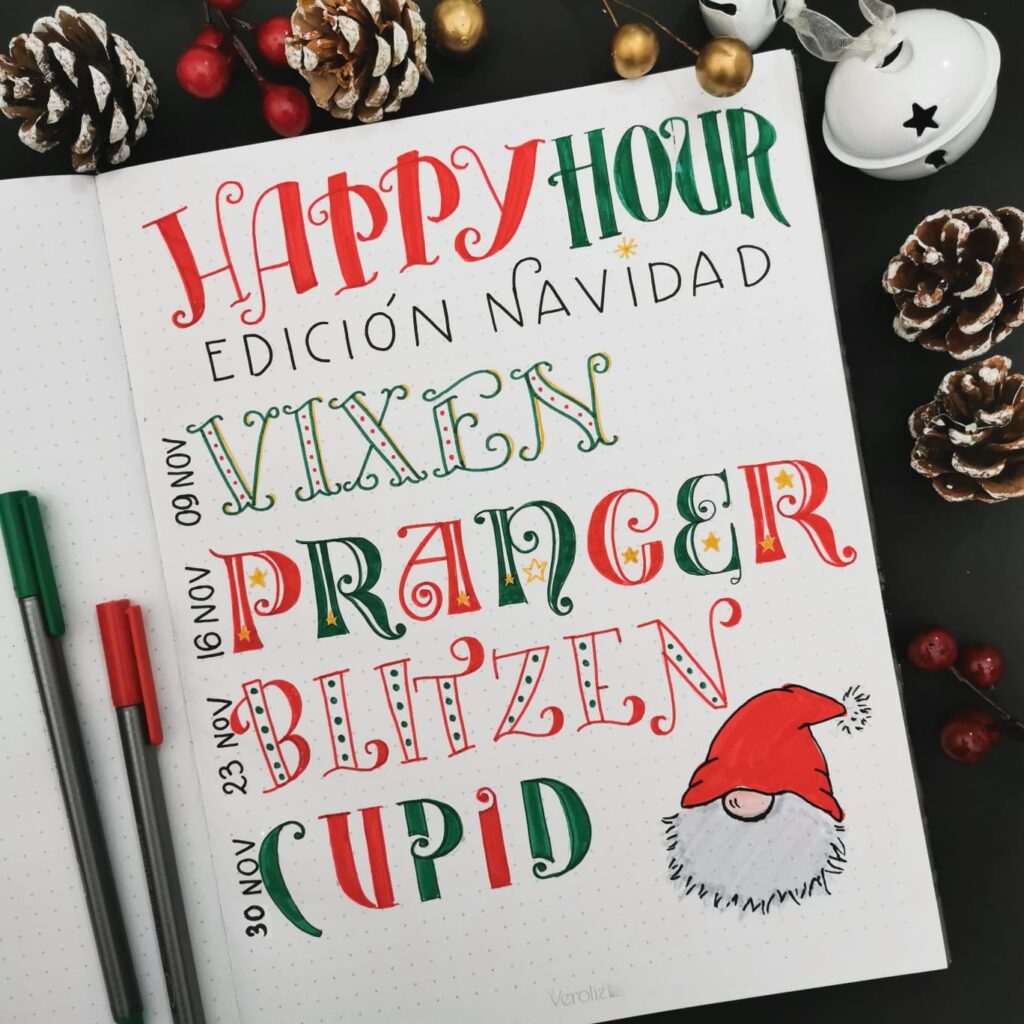 HAPPY HOUR
EDICIÓN NAVIDAD
09 NOV VIXEN
16 NOV PRANGER
23 NOV BLITZEN
30 NOV CUPID